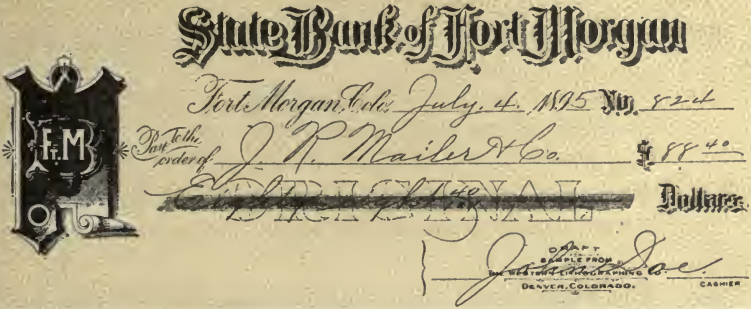 State Bank of Fort Morgan
Fort Morgan, Colo. July. 4. 1895 No. 824
Ft. M
Pay to the
order of J. R. Mailer & Co. $ 88 40
Eighty eight 40 ORIGINAL Dollars.
DRAFT
SAMPLE FROM
John Doe.
THE WESTERN LITHOGRAPHING CO.
DENVER, COLORADO.
CASHIER